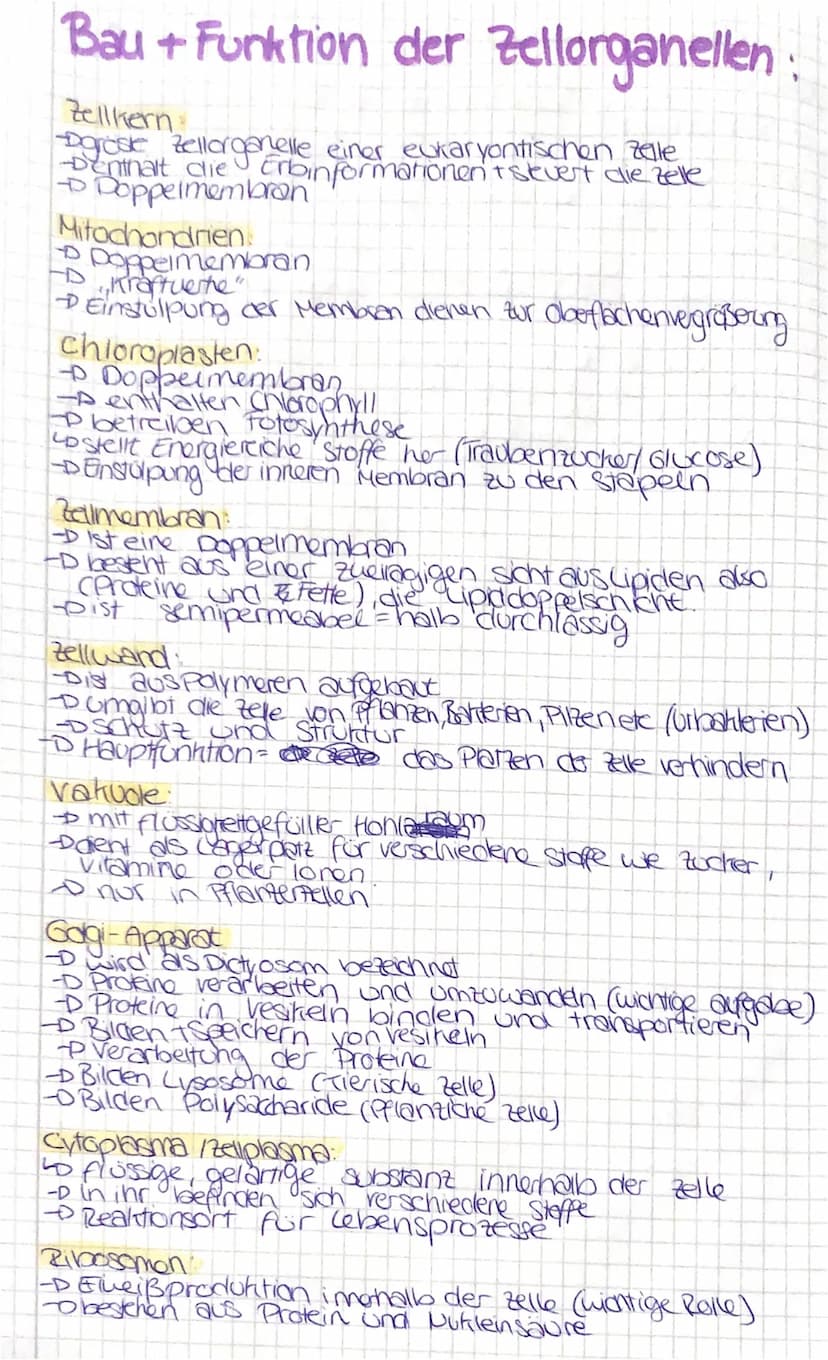 Bau + Funktion der Zellorganellen:
Zellkern:
→ größte Zellorganelle einer eukaryontischen Zelle
→ Enthält die Erbinformationen + steuert die Zelle
→ Doppelmembran
Mitochondrien:
→ Doppelmembran
→ „Kraftwerke"
→ Einstülpung der Membran dienen zur Oberflächenvergrößerung
Chloroplasten:
→ Doppelmembran
→ enthalten Chlorophyll
→ betreiben Fotosynthese
↳ stellt Energiereiche Stoffe her (Traubenzucker/Glucose)
→ Einstülpung der inneren Membran zu den Stapeln
Zellmembran:
→ ist eine Doppelmembran
→ besteht aus einer zweilagigen Sicht aus Lipiden also
(Proteine und Fette), die Lipiddoppelschicht.
→ ist semipermeabel = halb durchlässig
Zellwand:
→ ist aus Polymeren aufgebaut
→ umgibt die Zelle von Pflanzen, Bakterien, Pilzen etc (Urbakterien)
→ Schutz und Struktur
→ Hauptfunktion = das Platzen der Zelle verhindern
Vakuole:
→ mit flüssigkeitgefüller Hohlraum
→ dient als Lagerplatz für verschiedene Stoffe wie Zucker,
Vitamine oder Ionen
→ nur in Pflanzenzellen
Golgi-Apparat
→ wird als Dictyosom bezeichnet
→ Proteine verarbeiten und umzuwandeln (wichtige aufgabe)
→ Proteine in Vesikeln binden und transportieren
→ Bilden + Speichern von Vesikeln
→ Verarbeitung der Proteine
→ Bilden Lysosome (Tierische Zelle)
→ Bilden Polysaccharide (Pflanzliche Zelle)
Cytoplasma /Zellplasma:
↳ flüssige, gelartige Substanz innerhalb der Zelle
→ in ihr befinden sich verschiedene Stoffe
→ Reaktionsort für Lebensprozesse
Ribosomen:
→ Eiweißproduktion innerhalb der Zelle (wichtige Rolle)
→ bestehen aus Protein und Nukleinsäure